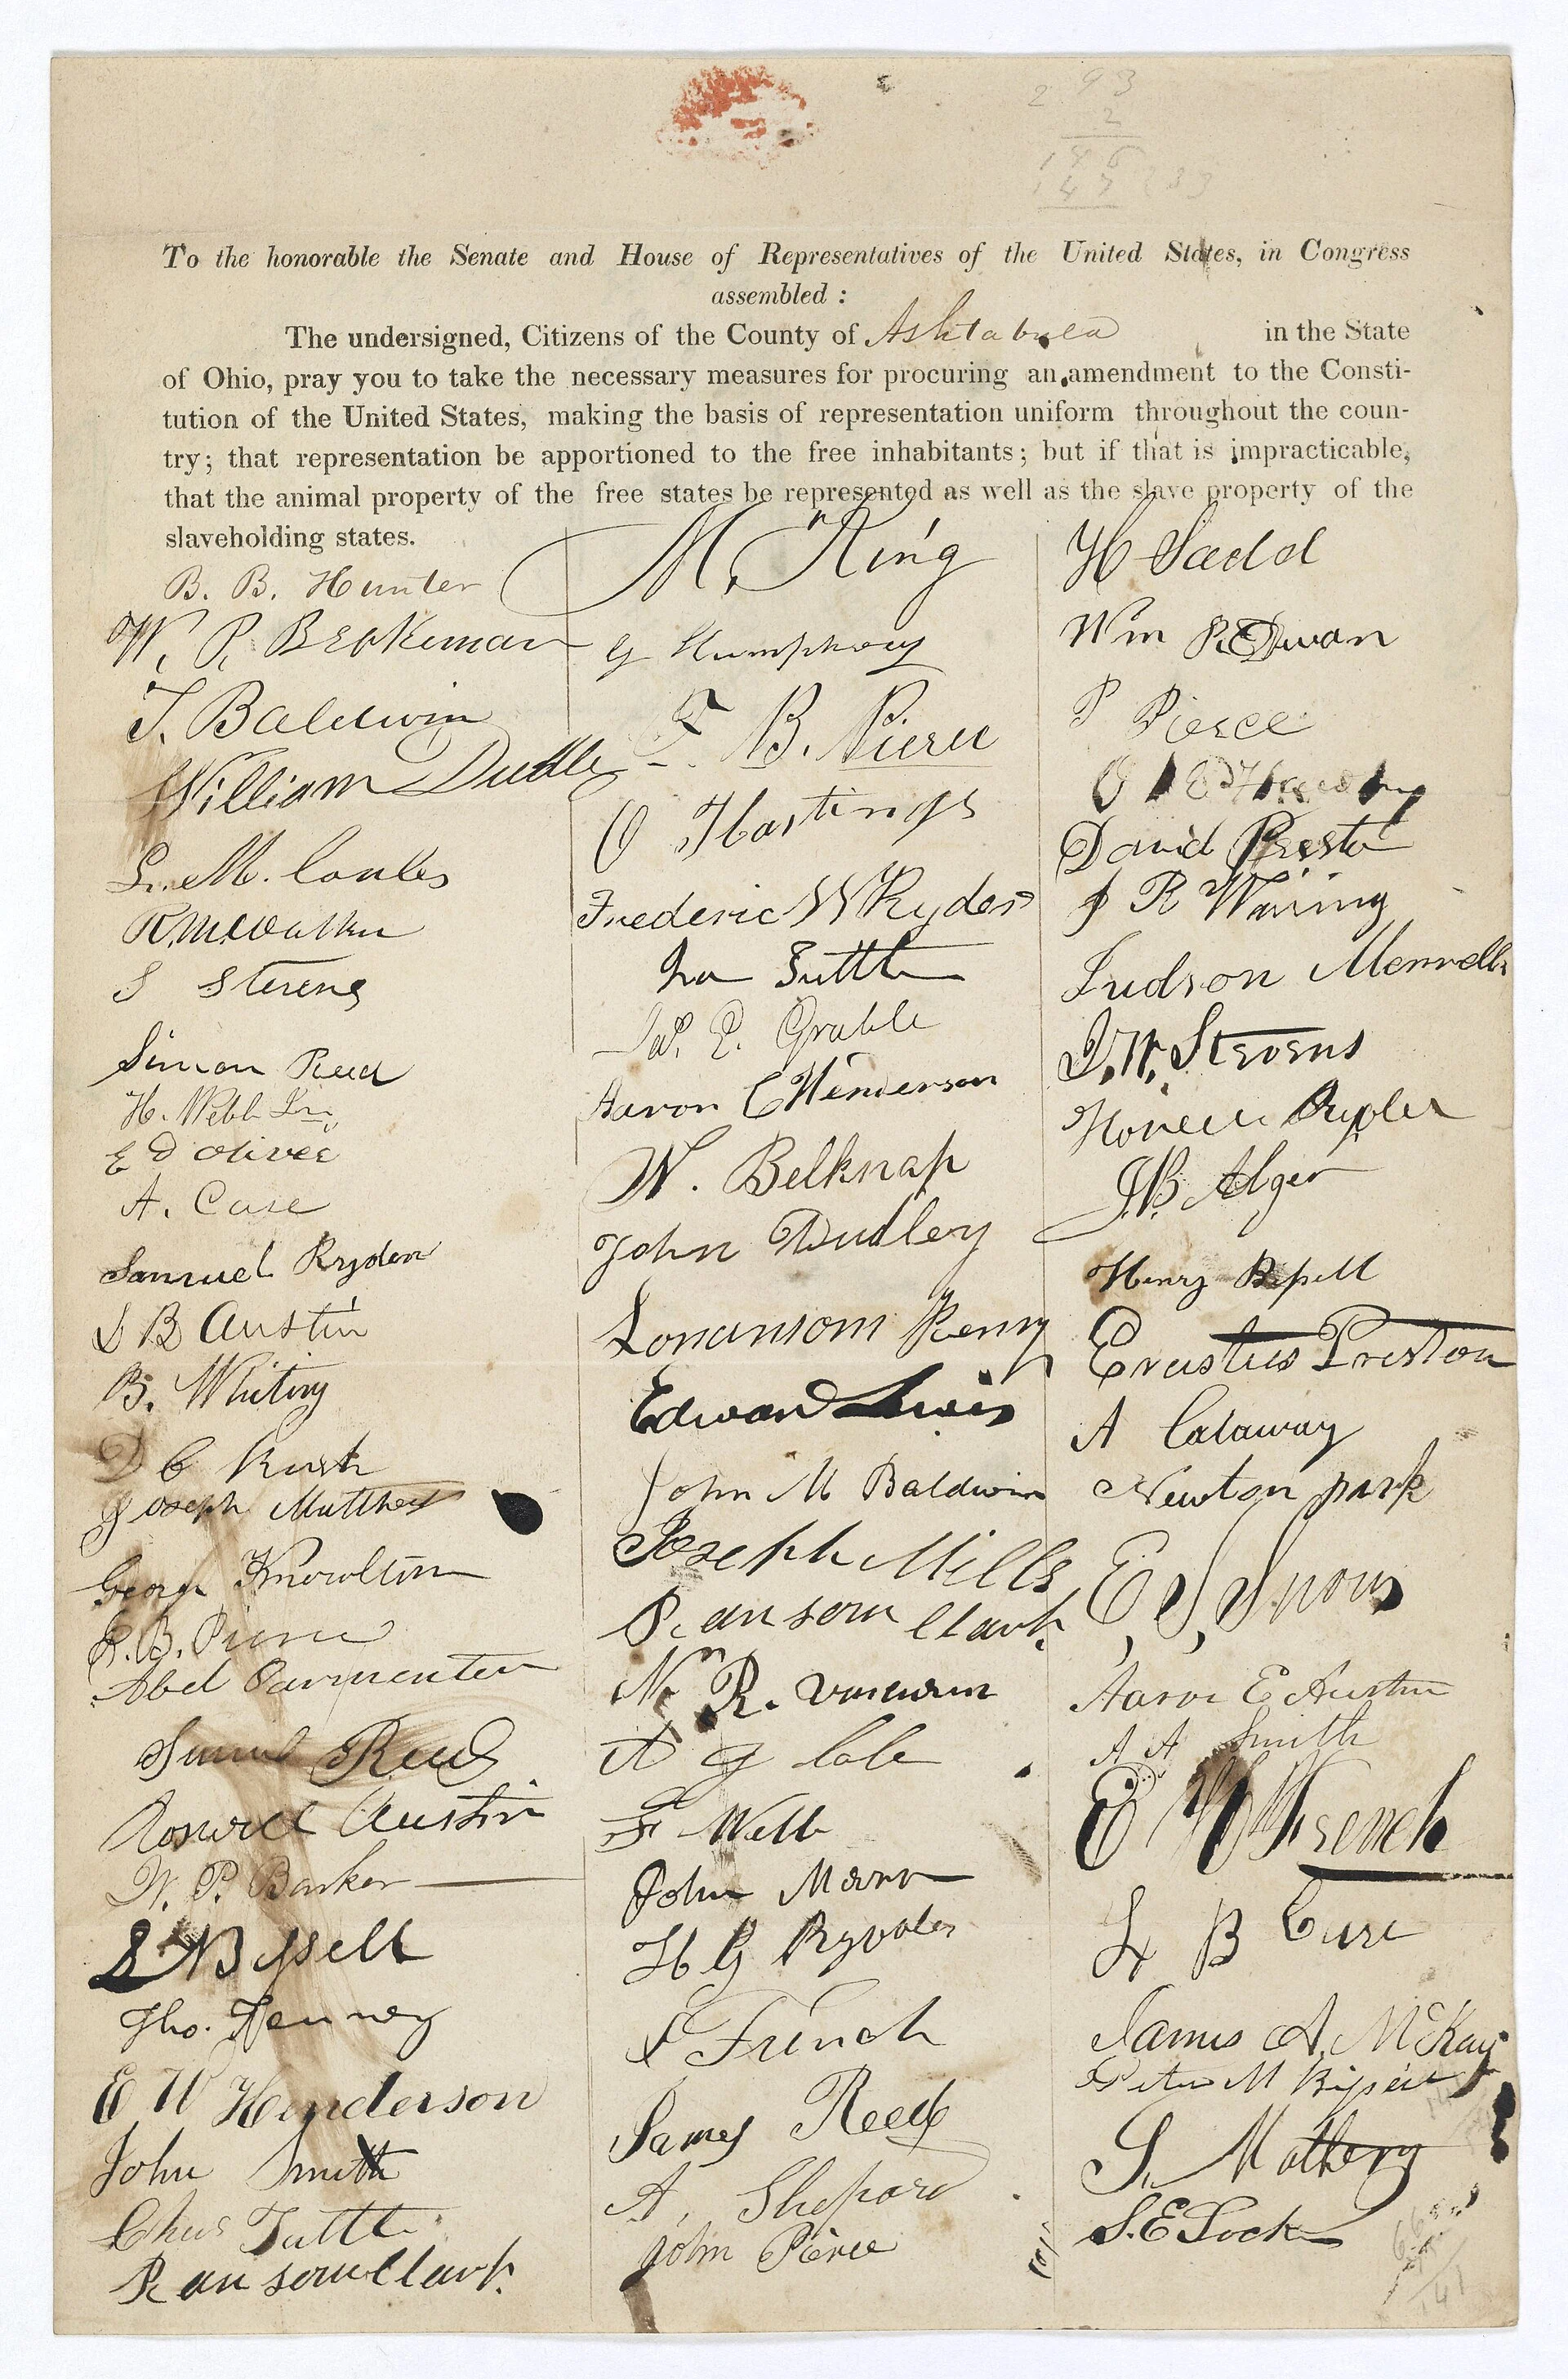 2 93
2
To the honorable the Senate and House of Representatives of the United States, in Congress
assembled :
The undersigned, Citizens of the County of Ashtabula in the State
of Ohio, pray you to take the necessary measures for procuring an amendment to the Consti-
tution of the United States, making the basis of representation uniform throughout the coun-
try; that representation be apportioned to the free inhabitants; but if that is impracticable,
that the animal property of the free states be represented as well as the slave property of the
slaveholding states.
B. B. Hunter
W. P. Brokeman
T. Baldwin
William Dudle
L. M. Cowles
S Stevens
Simon Reed
H. Webb Jr.
E D Olivee
A. Case
Samuel Ryder
B Austin
B. Whiting
D C Rush
Joseph Matthews
George Knowlton
E. B. Pierce
Abel Parmenter
Samuel Reed
Roswell Austin
W. P. Barker
Bissell
Tho. Fenney
E W Henderson
John Smith
Chas Tuttle
Ransom Clark
M. King
G Humphrey
F. B. Pierce
O Hastings
Frederic W Ryder
Ira Tuttle
W. E. Grable
Aaron C Henderson
W. Belknap
John Dudley
Loransom Perry
Edward Lewis
John M Baldwin
Joseph Mills
Ransom Clark
Wm R.
A G Cole
F Webb
John Mann
H G Ryder
French
James Reed
A. Shepard
John Pierce
H Ladd
Wm
P Pierce
O
David Preston
J R Waring
Judson Merrells
J. W. Stevens
Ryder
J. B. Alger
Henry Bissell
Erastus Preston
A Calaway
Newton park
E. S. Snow
Aaron E Austin
A A Smith
E French
L B Case
James A. McKay
Peter M Bissell
S. Mathews
S. E Lock